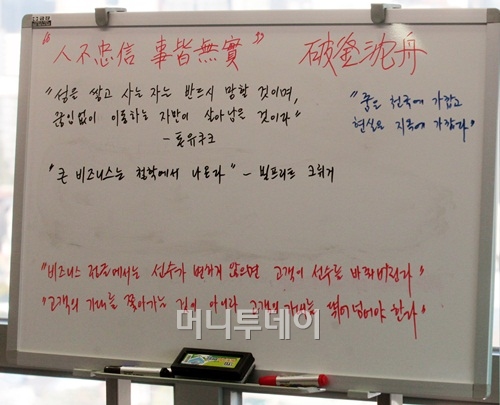 "人不忠信 事皆無實" 破釜沈舟
"성을 쌓고 사는 자는 반드시 망할 것이며,
끊임없이 이동하는 자만이 살아남을 것이라"
- 톤유쿠크
"꿈은 천국에 가깝고
현실은 지옥에 가깝다"
"큰 비즈니스는 철학에서 나온다" - 빌프리트 크뤼거
"비즈니스 전쟁에서는 선수가 변하지 않으면 고객이 선수를 바꿔버린다"
"고객의 기대를 쫓아가는 것이 아니라 고객의 기대를 뛰어넘어야 한다"
머니투데이